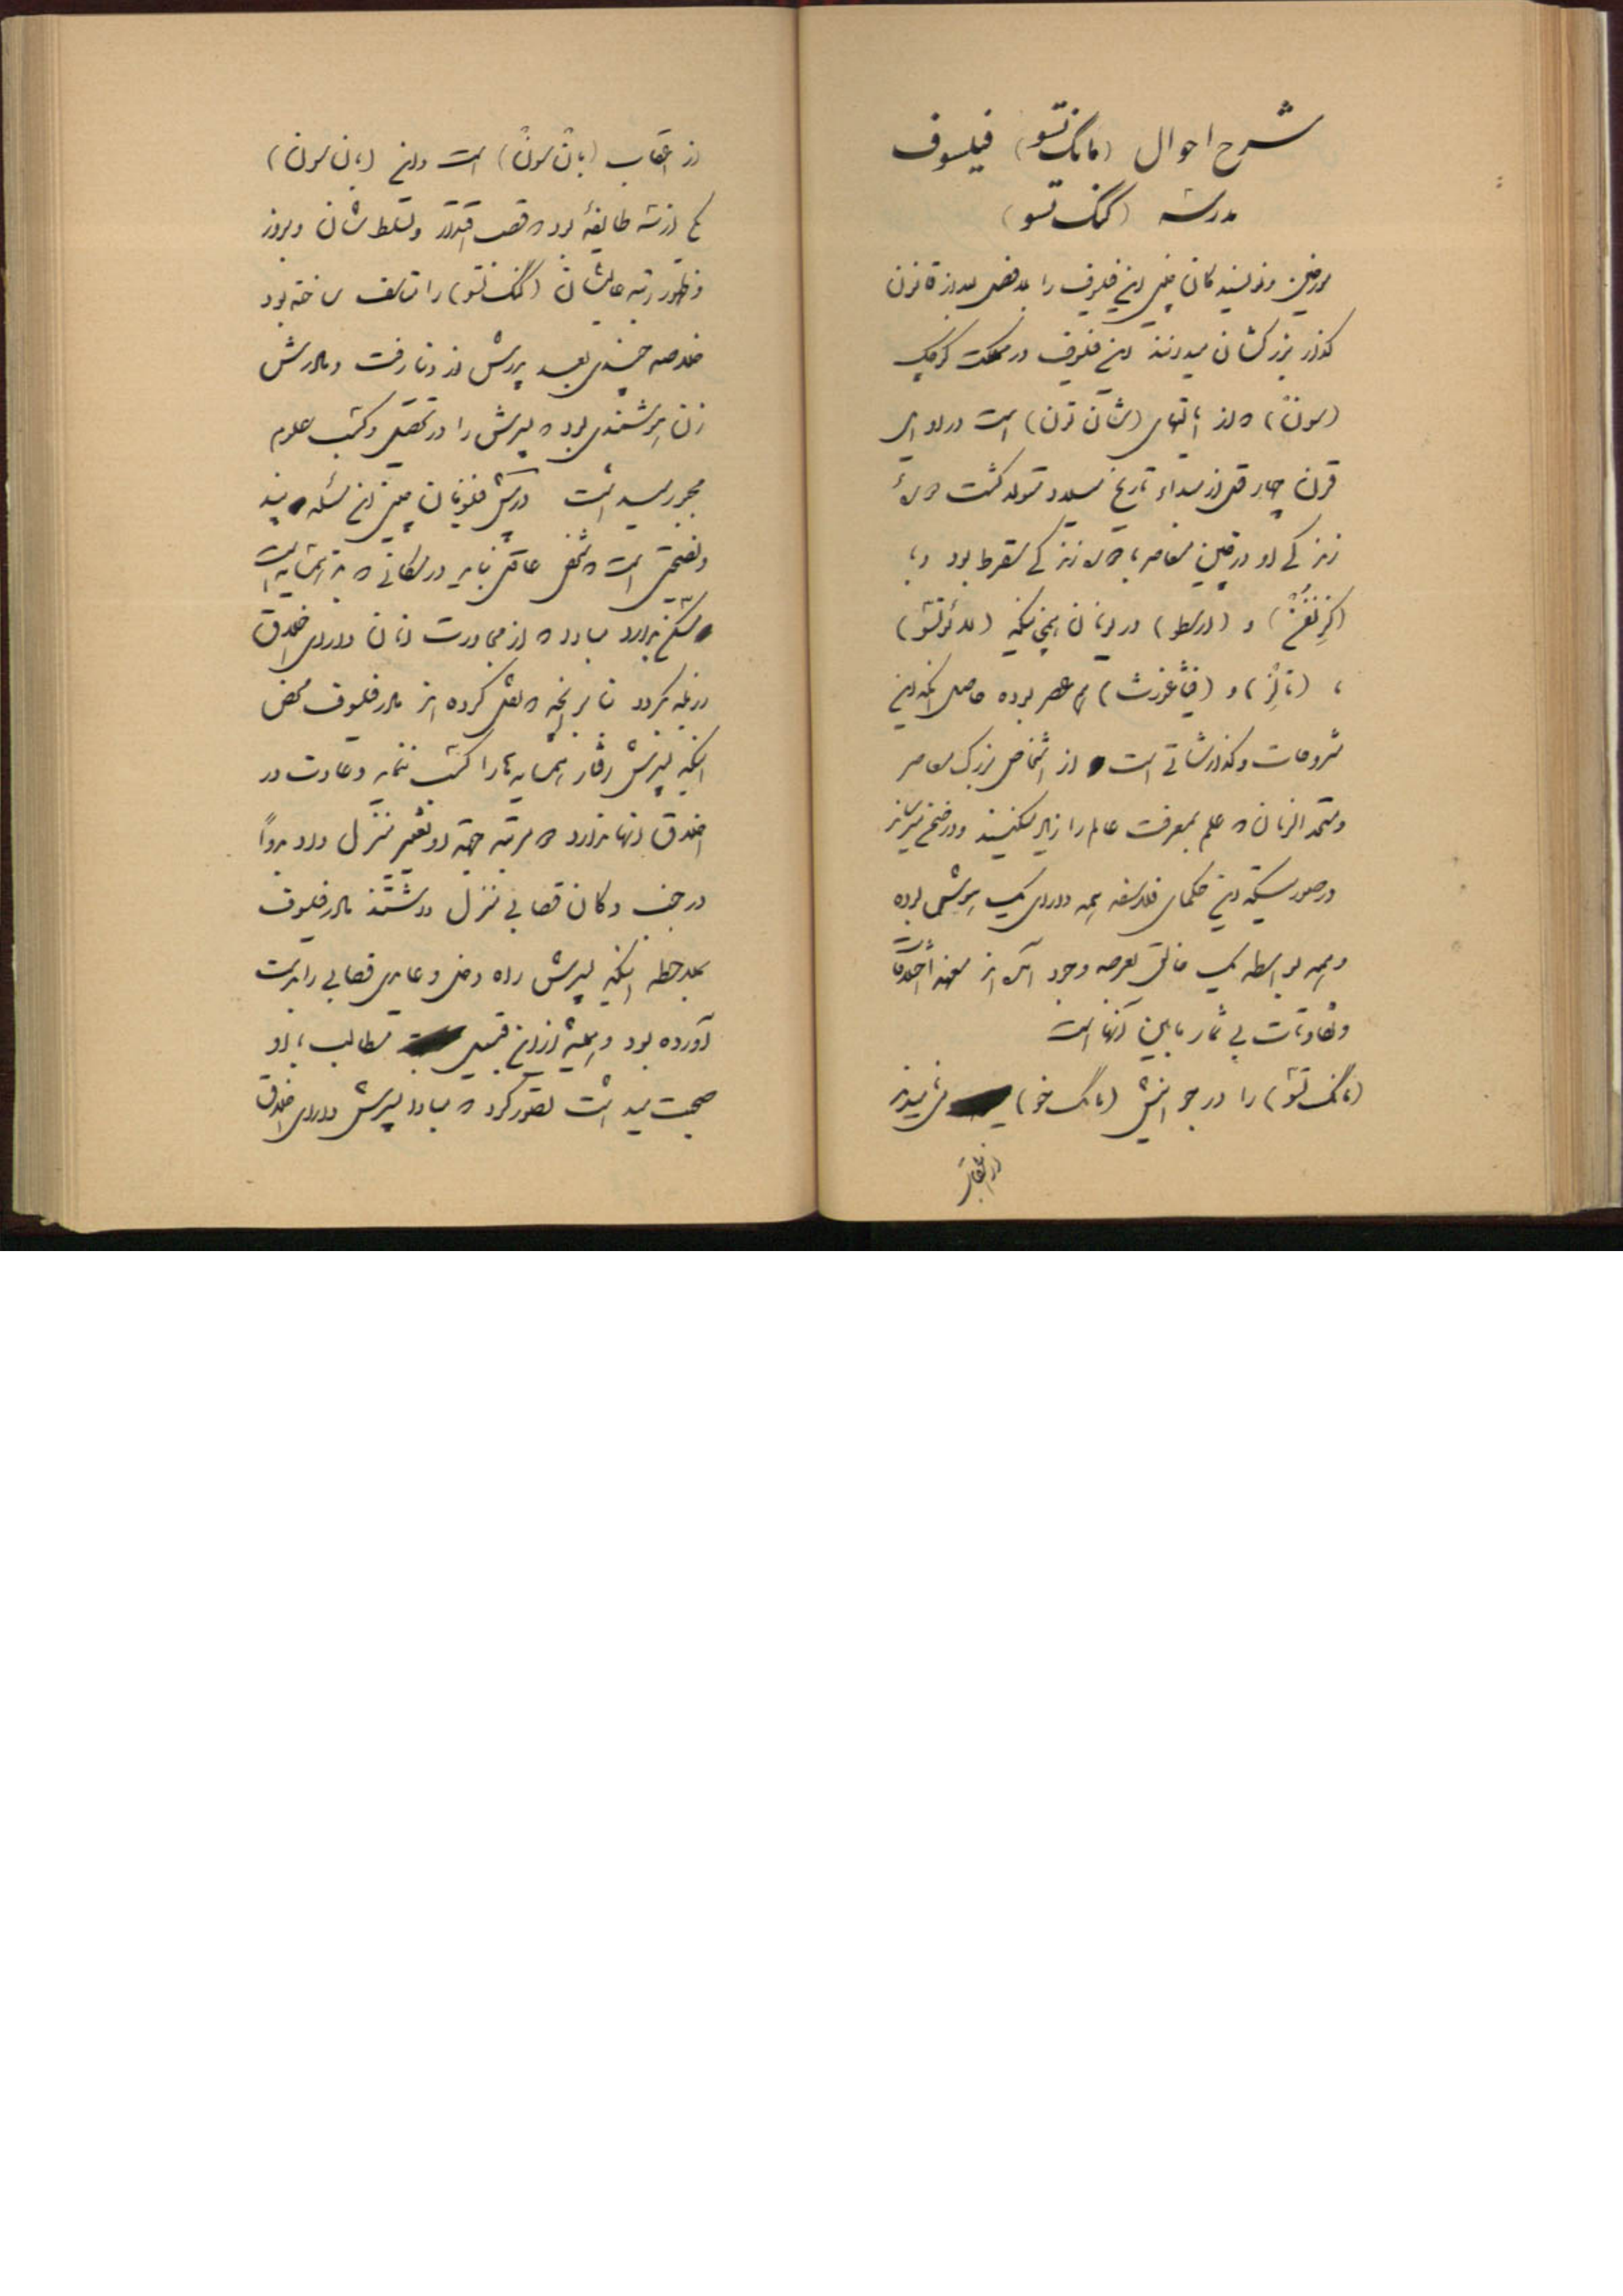 شرح احوال (مانک تسو) فیلسوف
مدرسه (کنک تسو)
مورخین و نویسندکان چینی این فیلسوف را بلافصل بعد از قانون
کذار بزرکشان میدانند این فیلسوف در مملکت کوچک
(سون) که از ایالتهای (شان تون) است در اوایل
قرن چهار قبل از مبداء تاریخ میلاد متولد کشت که سنهٔ
زندکی او درچین معاصر با سنه زندکی سقراط بود و با
(کزنفن) و (ارسطو) در یونان همچنانکه (لائوتسو)
با (تالز) و (فیثاغورث) هم عصر بوده حاصل آنکه این
شروحات و کذارشاتی است از اشخاص بزرک معاصر
و متحد الزمان که علم بمعرفت عالم را زیاد میکنند
درصورتیکه این حکمای فلاسفه همه دارای یک هوش بوده
و همه بواسطه یک خالق بعرصه وجود آمده‌اند معهذا اختلافات
و تفاوتات بی شمار مابین آنها است
(مانک تسو) را در جوانیش (مانک خو) مینامیدند
از اعقاب
از اعقاب (بان سون) است و این (بان سون)
یکی از سه طایفهٔ بود که قصب اقتدار و تسلط شان و بروز
و ظهور رتبه عالیشان (کنک تسو) را متاسف ساخته بود
خلاصه چندی بعد پدرش از دنیا رفت و مادرش
زن هوشمندی بود که پسرش را در تحصیل و کسب علوم
مجبور میداشت در پیش فیلسوفان چین این مسئله پند
و نصیحتی است که شخص عاقل نباید در مکانی که بد همسایه است
مسکن بدارد مبادا که از مجاورت آنان دارای اخلاق
رذیله کردد بنا بر آنچه که نقل کرده اند مادر فیلسوف محض
اینکه پسرش رفتار همسایه ها را کسب ننماید و عادت در
اخلاق آنها ندارد سه مرتبه جهة او تغییر منزل داد بدواً
در جنب دکان قصابی منزل داشتند مادر فیلسوف
بملاحظه اینکه پسرش راه و رسم قصابی را بدست
آورده بود و همیشه از این قبیل مطالب با او
صحبت میداشت تصور کرد که مبادا پسرش دارای اخلاق